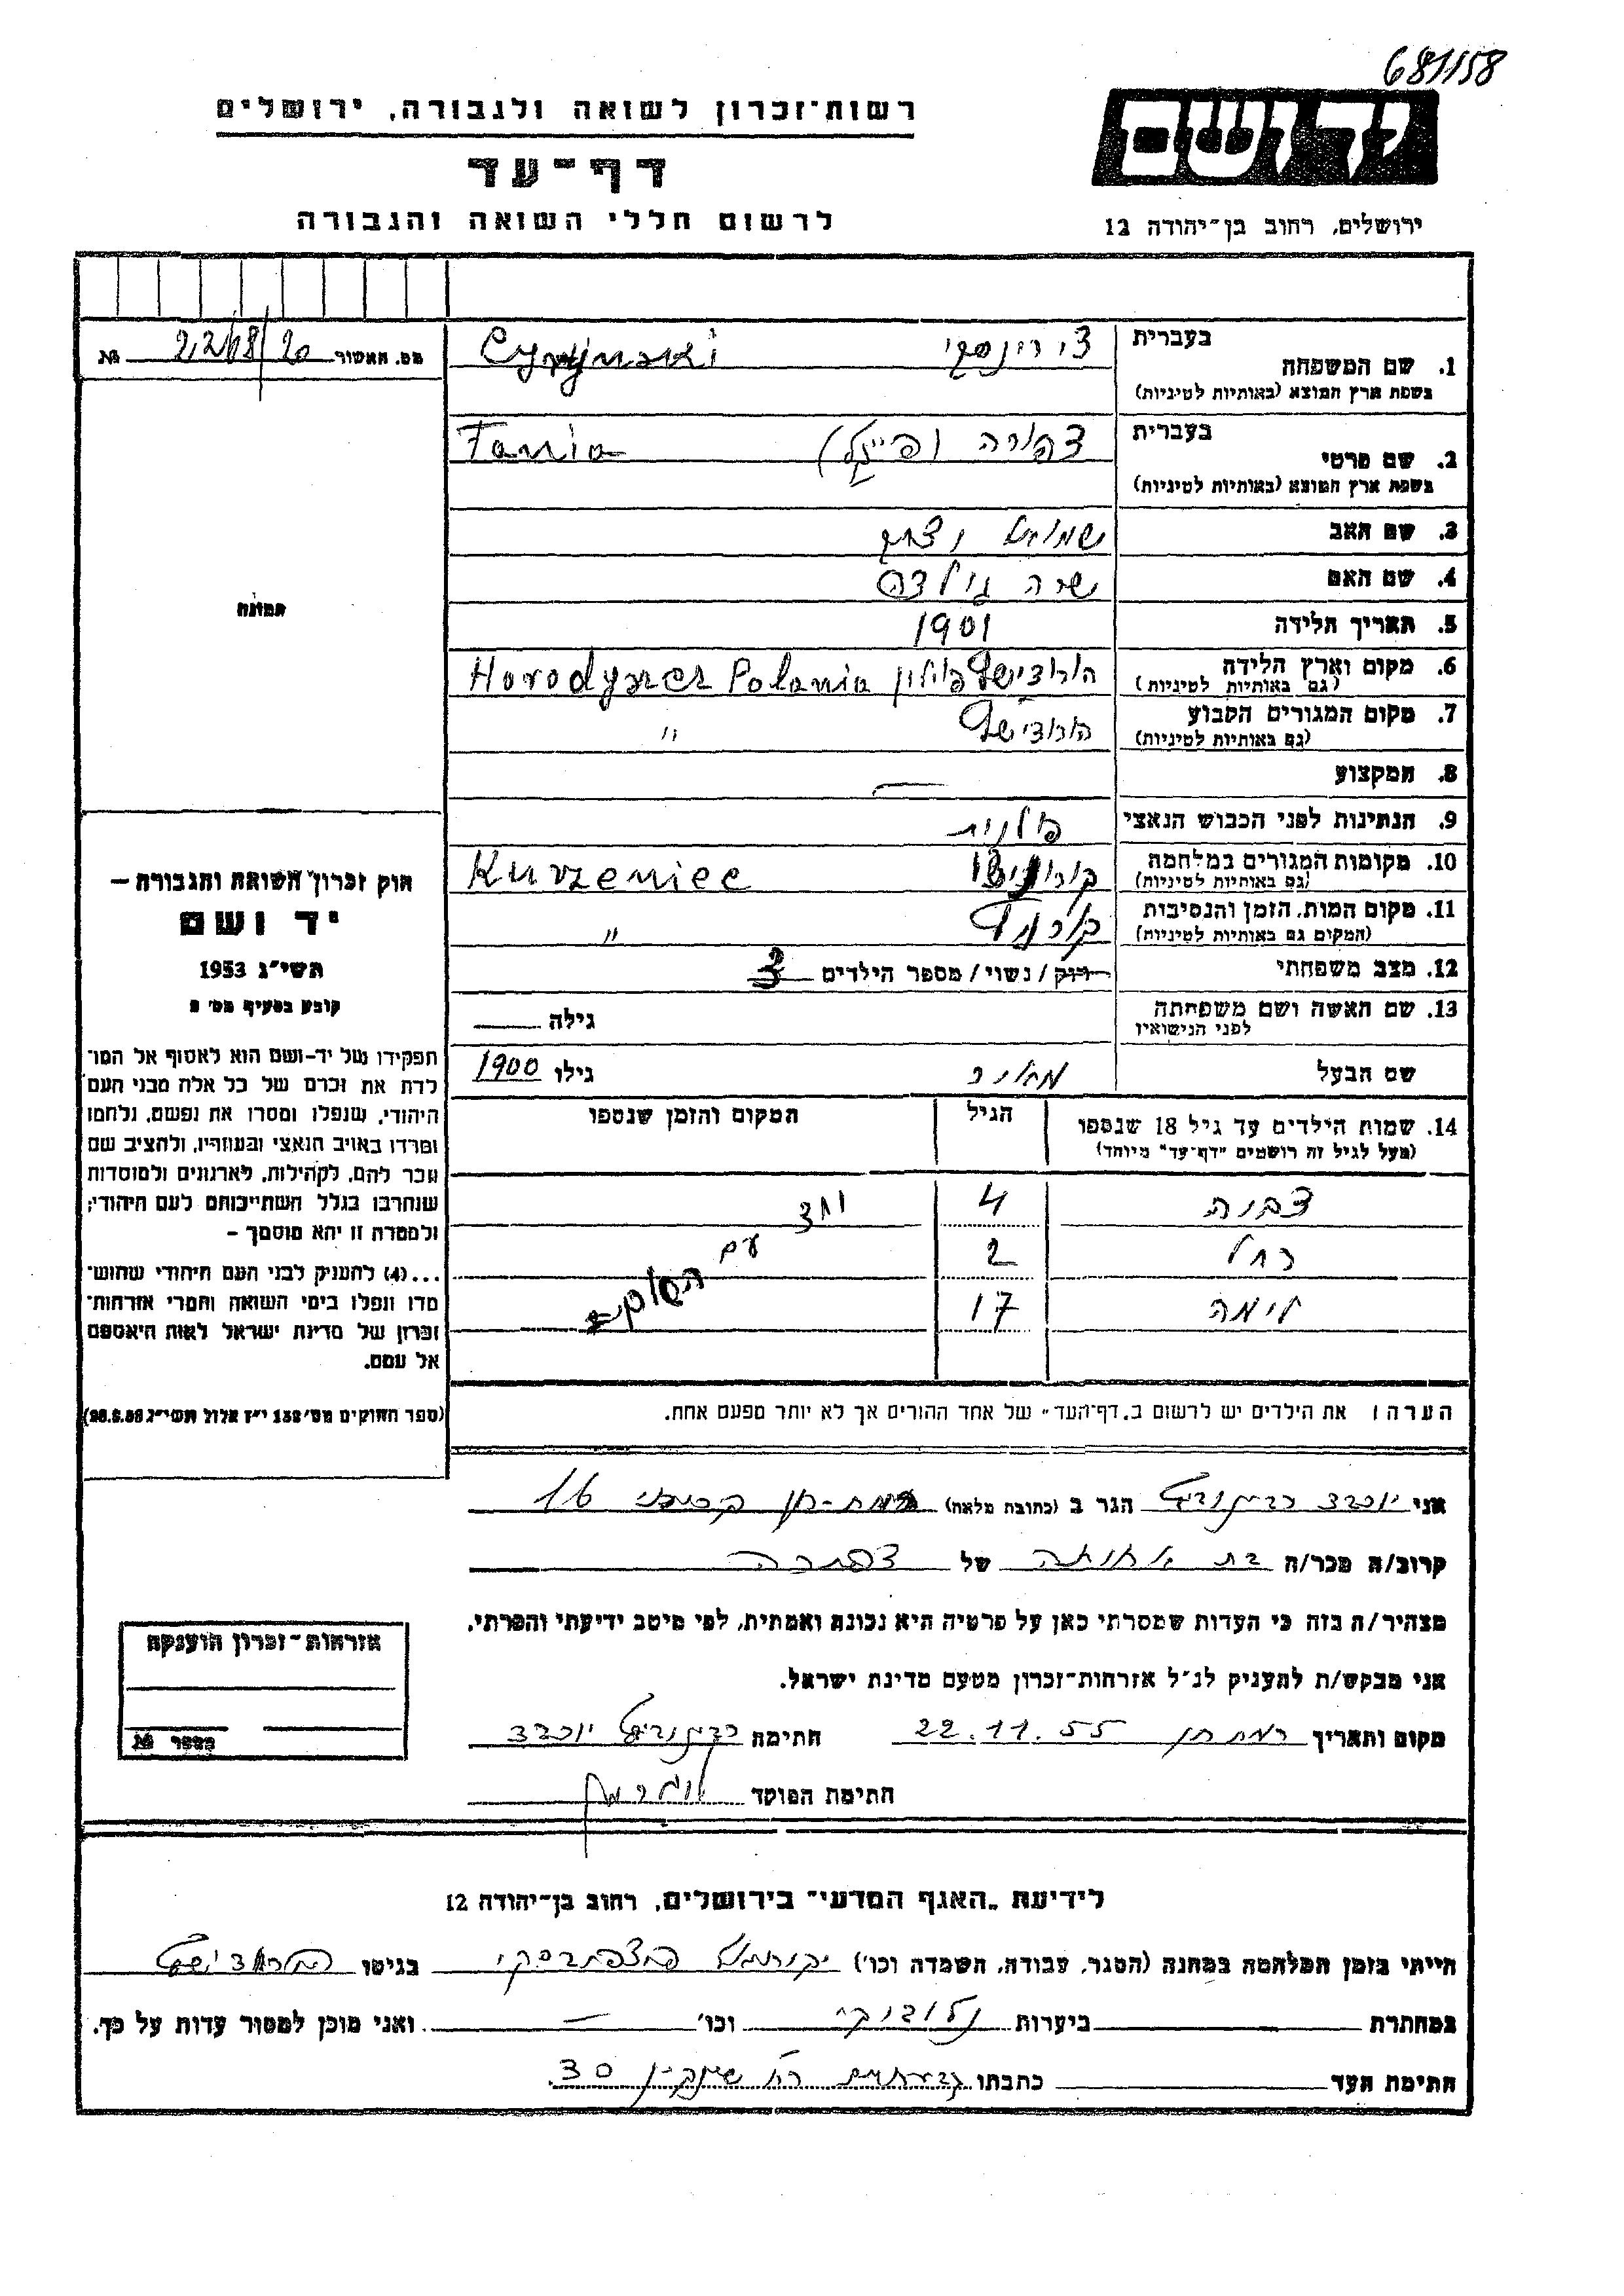 681158
רשות־זכרון לשואה ולגבורה, ירושלים
יד ושם
דף־עד
לרשום חללי השואה והגבורה
ירושלים, רחוב בן־יהודה 12
מס. האשור 20 № 22/18
1. שם המשפחה
בעברית
בשפת ארץ המוצא (באותיות לטיניות)
2. שם פרטי
בעברית
צפורה (פייגל) Fania
בשפת ארץ המוצא (באותיות לטיניות)
3. שם האב שמואל יצחק
4. שם האם שרה גולדה
5. תאריך הלידה 1901
6. מקום וארץ הלידה פולין Horodyszcz Polania
(גם באותיות לטיניות)
7. מקום המגורים הקבוע "
(גם באותיות לטיניות)
8. המקצוע —
9. הנתינות לפני הכבוש הנאצי פולנית
10. מקומות המגורים במלחמה Kurzeniec
(גם באותיות לטיניות)
11. מקום המות, הזמן והנסיבות "
(המקום גם באותיות לטיניות)
12. מצב משפחתי רווק / נשוי / מספר הילדים 3
13. שם האשה ושם משפחתה גילה
לפני הנישואין
שם הבעל מאיר גילו 1900
14. שמות הילדים עד גיל 18 שנספו הגיל המקום והזמן שנספו
(מעל לגיל זה רושמים "דף־עד" מיוחד)
4 יחד
רחל 2 עם
17
הערה: את הילדים יש לרשום ב„דף־העד" של אחד ההורים אך לא יותר מפעם אחת.
תמונה
חוק זכרון השואה והגבורה —
יד ושם
תשי״ג 1953
קובע בסעיף מס' 2
תפקידו של יד-ושם הוא לאסוף אל המו־
לדת את זכרם של כל אלה מבני העם
היהודי, שנפלו ומסרו את נפשם, נלחמו
ומרדו באויב הנאצי ובעוזריו, ולהציב שם
וזכר להם, לקהילות, לארגונים ולמוסדות
שנחרבו בגלל השתייכותם לעם היהודי;
ולמטרה זו יהא מוסמך —
...(4) להעניק לבני העם היהודי שהוש־
מדו ונפלו בימי השואה והמרי אזרחות־
זכרון של מדינת ישראל לאות היאספם
אל עמם.
(ספר החוקים מס' 132 י״ז אלול תשי״ג 28.8.53)
אני יוכבד רבינוביץ הגר ב (כתובת מלאה) רמת-גן 16
קרוב/ה מכר/ה בת אחותה של
מצהיר/ה בזה כי העדות שמסרתי כאן על פרטיה היא נכונה ואמתית, לפי מיטב ידיעתי והכרתי.
אני מבקש/ת להעניק לנ״ל אזרחות־זכרון מטעם מדינת ישראל.
מקום ותאריך רמת גן 22.11.55 חתימה רבינוביץ יוכבד
חתימת הפוקד
אזרחות־זכרון הוענקה
מספר №
לידיעת „האגף המדעי" בירושלים, רחוב בן־יהודה 12
הייתי בזמן המלחמה במחנה (הסגר, עבודה, השמדה וכו') בגיטו
במחתרת ביערות וכו' — ואני מוכן למסור עדות על כך.
חתימת העד כתבתו גבעתיים רח' שינקין 30